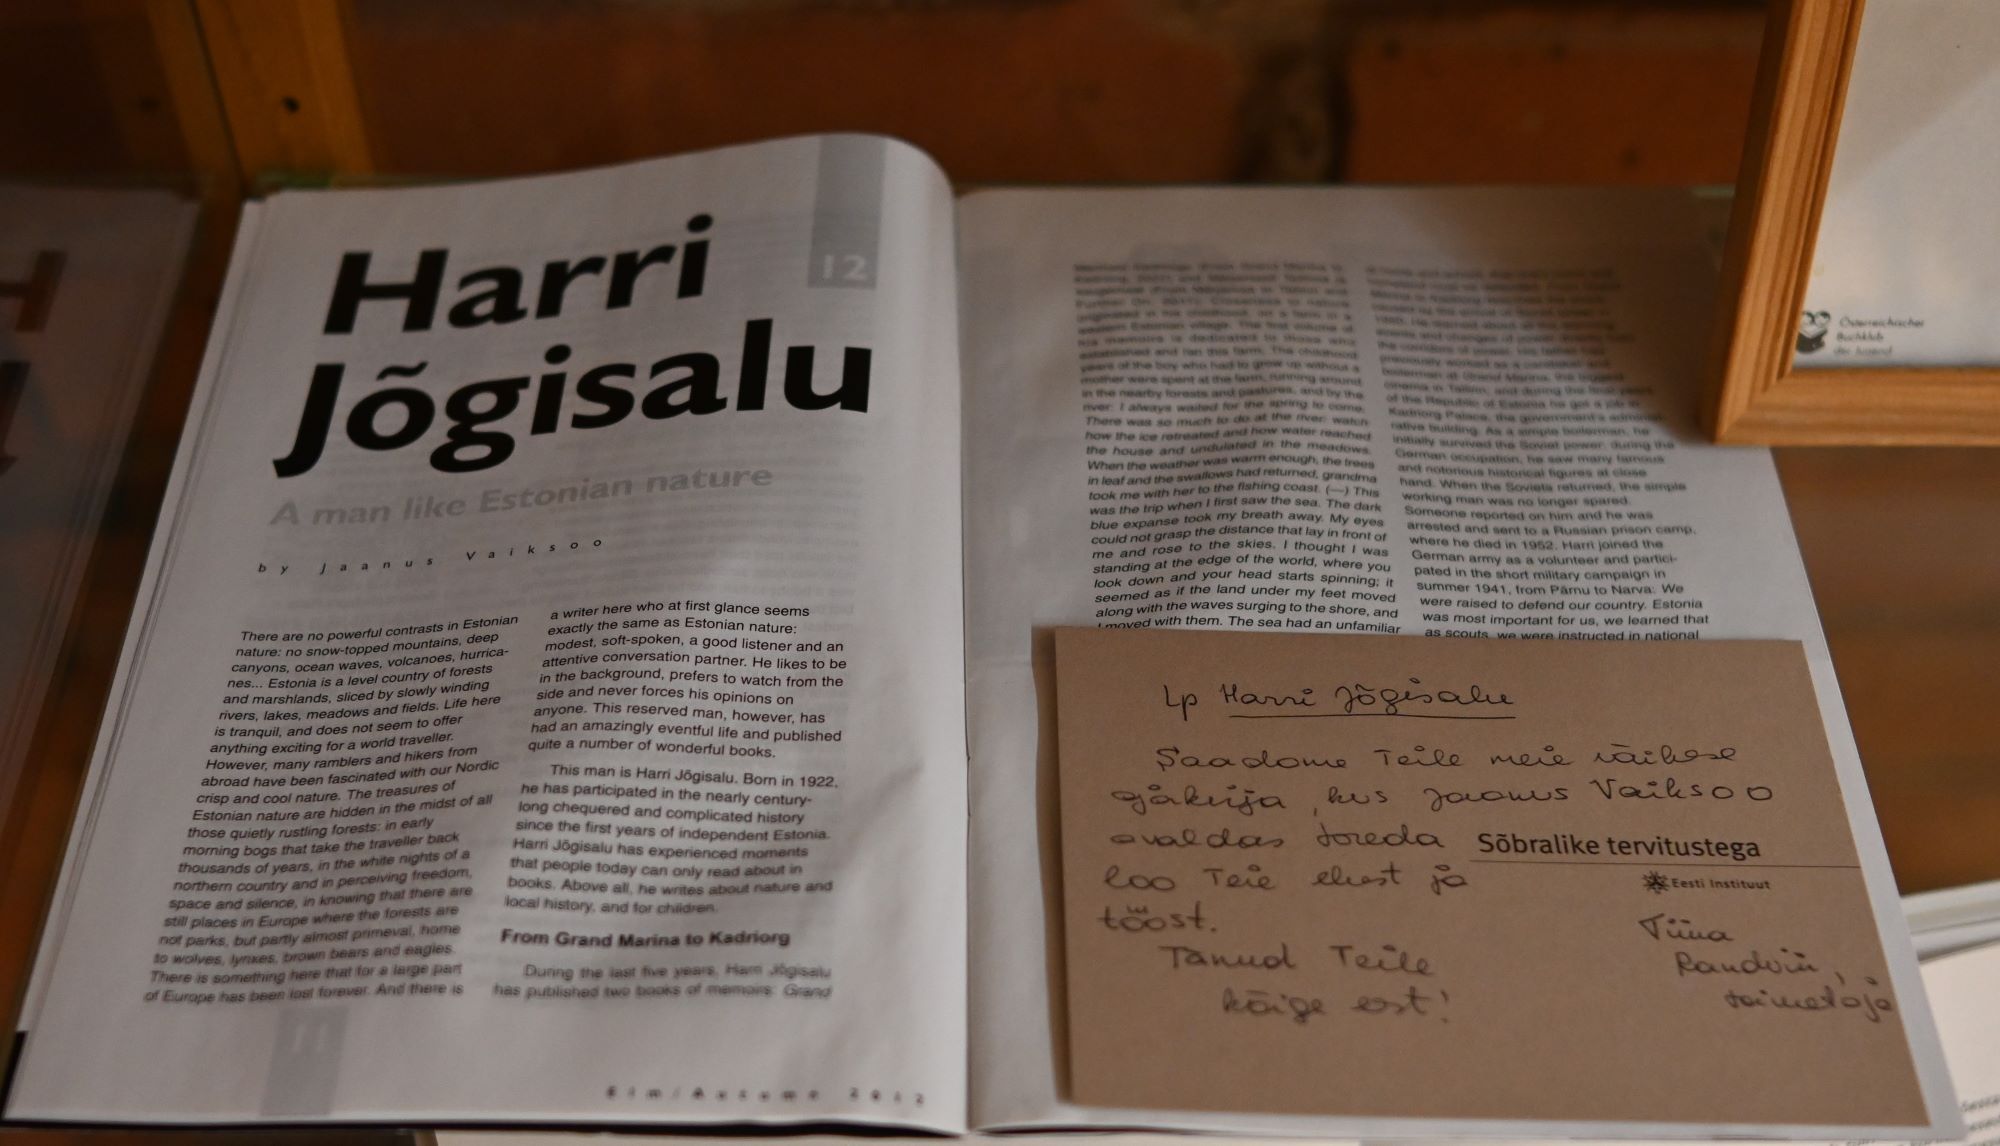 Harri
Jõgisalu
12
A man like Estonian nature
by Jaanus Vaiksoo
There are no powerful contrasts in Estonian
nature: no snow-topped mountains, deep
canyons, ocean waves, volcanoes, hurrica-
nes... Estonia is a level country of forests
and marshlands, sliced by slowly winding
rivers, lakes, meadows and fields. Life here
is tranquil, and does not seem to offer
anything exciting for a world traveller.
However, many ramblers and hikers from
abroad have been fascinated with our Nordic
crisp and cool nature. The treasures of
Estonian nature are hidden in the midst of all
those quietly rustling forests: in early
morning bogs that take the traveller back
thousands of years, in the white nights of a
northern country and in perceiving freedom,
space and silence, in knowing that there are
still places in Europe where the forests are
not parks, but partly almost primeval, home
to wolves, lynxes, brown bears and eagles.
There is something here that for a large part
of Europe has been lost forever. And there is
a writer here who at first glance seems
exactly the same as Estonian nature:
modest, soft-spoken, a good listener and an
attentive conversation partner. He likes to be
in the background, prefers to watch from the
side and never forces his opinions on
anyone. This reserved man, however, has
had an amazingly eventful life and published
quite a number of wonderful books.
This man is Harri Jõgisalu. Born in 1922,
he has participated in the nearly century-
long chequered and complicated history
since the first years of independent Estonia.
Harri Jõgisalu has experienced moments
that people today can only read about in
books. Above all, he writes about nature and
local history, and for children.
From Grand Marina to Kadriorg
During the last five years, Harri Jõgisalu
has published two books of memoirs: Grand
11
Elm/Autumn 2012
established and ran this farm. The childhood
years of the boy who had to grow up without a
mother were spent at the farm, running around
in the nearby forests and pastures, and by the
river: I always waited for the spring to come.
There was so much to do at the river: watch
how the ice retreated and how water reached
the house and undulated in the meadows.
When the weather was warm enough, the trees
in leaf and the swallows had returned, grandma
took me with her to the fishing coast. (---) This
was the trip when I first saw the sea. The dark
blue expanse took my breath away. My eyes
could not grasp the distance that lay in front of
me and rose to the skies. I thought I was
standing at the edge of the world, where you
look down and your head starts spinning; it
seemed as if the land under my feet moved
along with the waves surging to the shore, and
I moved with them. The sea had an unfamiliar
cinema in Tallinn, and during the final years
of the Republic of Estonia he got a job in
Kadriorg Palace, the government's administ-
rative building. As a simple boilerman, he
initially survived the Soviet power; during the
German occupation, he saw many famous
and notorious historical figures at close
hand. When the Soviets returned, the simple
working man was no longer spared.
Someone reported on him and he was
arrested and sent to a Russian prison camp,
where he died in 1952. Harri joined the
German army as a volunteer and partici-
pated in the short military campaign in
summer 1941, from Pärnu to Narva: We
were raised to defend our country. Estonia
was most important for us, we learned that
as scouts, we were instructed in national
Lp Harri Jõgisalu
Saadame Teile meie väikese
ajakirja, kus Jaanus Vaiksoo
avaldas toreda
loo Teie elust ja
tööst.
Tänud Teile
kõige eest!
Sõbralike tervitustega
Eesti Instituut
Tiina
Randviir,
toimetaja
Österreichischer
Buchklub
der Jugend